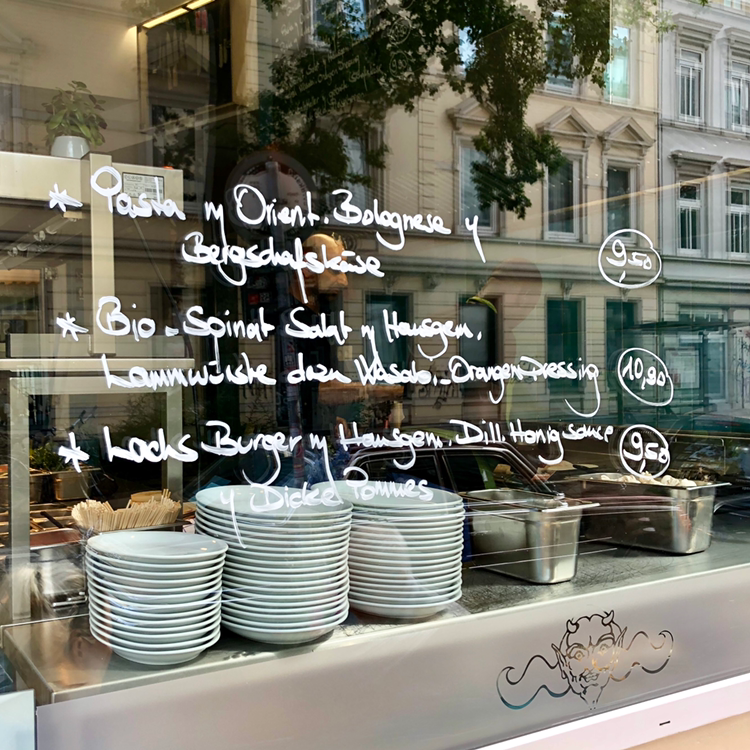 * Pasta m Orient. Bolognese y
Bergschafskäse
9,50
* Bio-Spinat Salat m Hausgem.
Lammwürste dazu Wasabi-Orangen Dressing
10,90
* Lachs Burger m Hausgem. Dill. Honig sauce
9,50
y Dicke Pommes